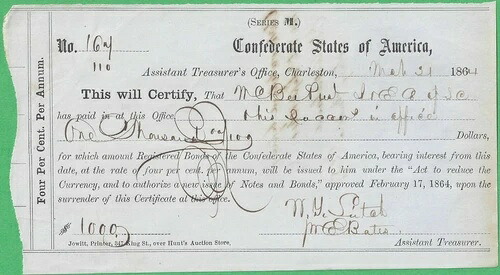 (SERIES M.)
No. 167 Confederate States of America,
110
Assistant Treasurer's Office, Charleston, Mar 31 1864
This will Certify, That
has paid in at this Office,
One Thousand 00/100 Dollars,
for which amount Registered Bonds of the Confederate States of America, bearing interest from this
date, at the rate of four per cent. per annum, will be issued to him under the "Act to reduce the
Currency, and to authorize a new issue of Notes and Bonds," approved February 17, 1864, upon the
surrender of this Certificate at this office.
$1000
Assistant Treasurer.
Jowitt, Printer, 347 King St., over Hunt's Auction Store,
Four Per Cent. Per Annum.